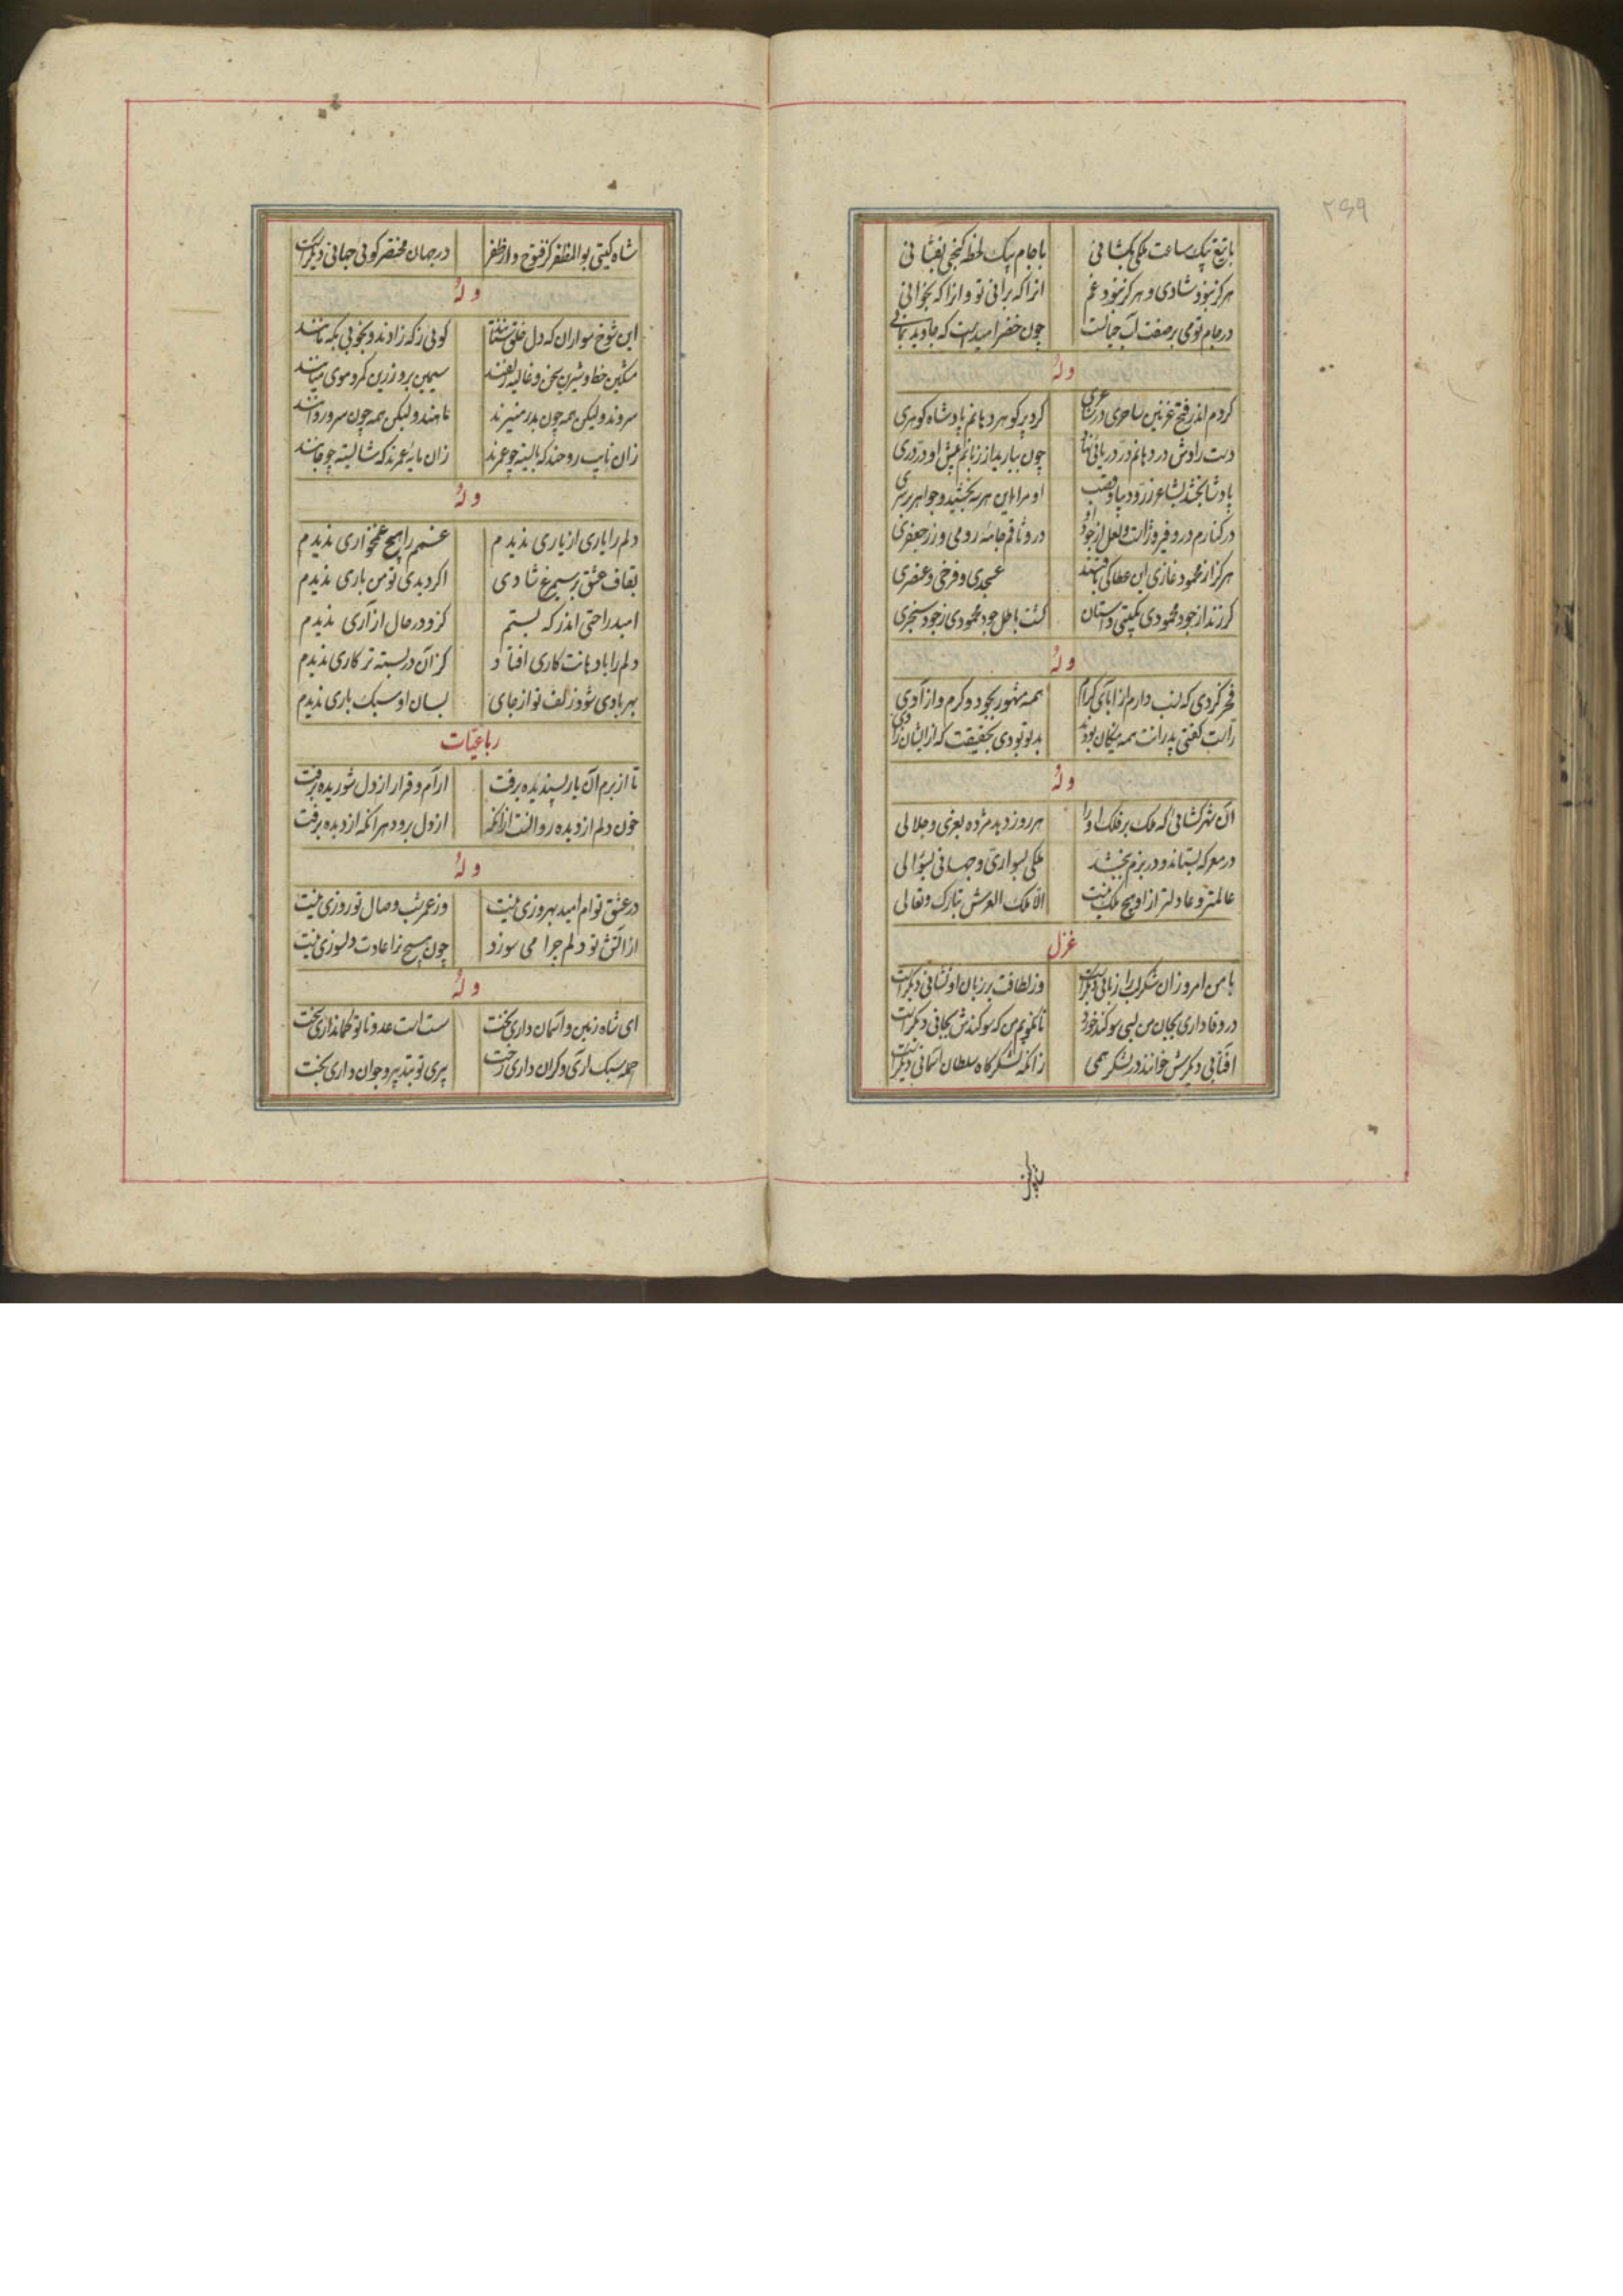 ۲۶۹
با تیغ بیک ساعت ملکی بکشانی با جام بیک لحظه کنجی بفشانی
هرکز نبود شادی و هرکز نبود غم انرا که برانی تو و انرا که بخوانی
در جام تو می بر صفت آب حیاتست چون خضر امیدست که جاوید بمانی
وله
کردم اندر فتح غزنین ساحری در شاعری کرد پر کوهر دهانم پادشاه کوهری
دست رادش در دهانم در دریائی نهاد چون ببارید از زبانم پیش او در دری
پادشا بخشد بشاعر زر و دیبا و قصب او مرا این هر سه بخشید و جواهر بر سری
در کنارم در و فیروزه است و لعل از جود او در وثاقم جامه رومی و زر جعفری
هرکز از محمود غازی این عطا کی یافتند عسجدی و فرخی و عنصری
کر زنند از جود محمودی بکیتی داستان کشت باطل جود محمودی ز جود سنجری
وله
فخر کردی که نسب دارم از ابای کرام همه مشهور بجود و کرم و ازادی
راست کفتی پدرانت همه نیکان بودند بد تو بودی بحقیقت که ازایشان زادی
وله
آن شهرکشائی که ملک بر فلک او را هر روز دهد مژده بعزی و جلالی
در معرکه بستاند و در بزم ببخشد ملکی بسواری و جهانی بسؤالی
عالمتر و عادلتر ازاو هیچ ملک نیست الا ملک العرش تبارک و تعالی
غزل
با من امروز ان شکرلب را زبانی دیکر است وز لطافت بر زبان او نشانی دیکر است
در وفاداری بجان من بسی سوکند خورد تا نکویم من که سوکندش بجانی دیکر است
افتابی دیکرش خوانند در لشکر همی زانکه لشکرکاه سلطان اسمانی دیکر است
شاه کیتی
شاه کیتی بوالمظفر کز فتوح و از ظفر در جهان مختصر کوئی جهانی دیکر است
وله
این شوخ سواران که دل خلق ستانند کوئی ز که زادند و بخوبی بکه مانند
مشکین خط و شیرین سخن و غالیه زلفند سیمین بر و زرین کمر و موی میانند
سروند ولیکن همه چون بدر منیرند ماهند ولیکن همه چون سرو روانند
زان نایب روحند که بایسته چو عمرند زان مایه عمرند که شایسته چو جانند
وله
دلم را یاری از یاری ندیدم غمم را هیچ غمخواری ندیدم
بقاف عشق بر سیمرغ شادی اکر دیدی تو من باری ندیدم
امید راحتی اندر که بستم کزو در حال ازاری ندیدم
دلم را با دهانت کاری افتاد کز آن دربسته تر کاری ندیدم
بهر بادی شود زلف تو از جای بسان او سبک باری ندیدم
رباعیات
تا از برم آن یار پسندیده برفت ارام و قرار از دل شوریده برفت
خون دلم از دیده روانست ازانکه از دل برود هرانکه از دیده برفت
وله
در عشق توام امید بهروزی نیست وز عمر شب وصال تو روزی نیست
از اتش تو دلم چرا می سوزد چون هیچ ترا عادت دلسوزی نیست
وله
ای شاه زمین و اسمان داری تخت سست است عدو تا تو کمانداری سخت
حمله سبک آری و کران داری رخت پیری تو بتدبیر و جوان داری بخت